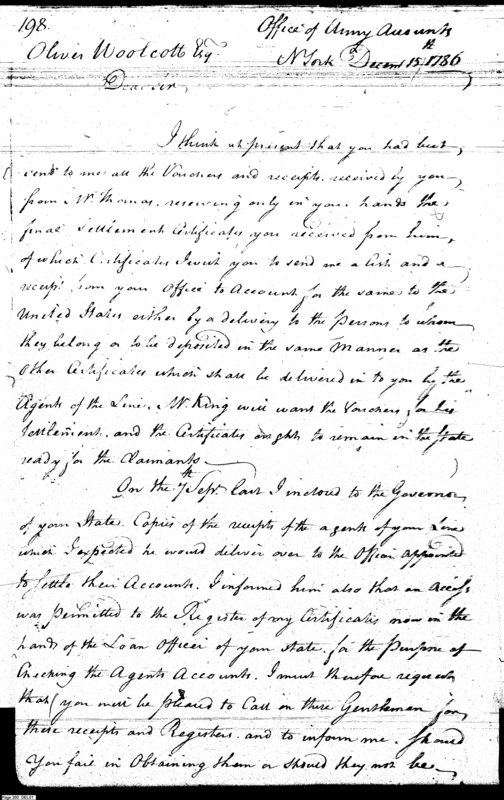 198.
Office of Army Accounts
Oliver Woolcott Esqr
N York Decemr 15th 1786
Dear Sir,
I think at present that you had best
send to me all the Vouchers and receipts received by you
from Mr Thomas, reserving only in your hands the
final Settlement Certificates you received from him,
of which Certificates I wish you to send me a List and a
receipt from your Office to Account for the same to the
United States either by a delivery to the Persons to whom
they belong or to be deposited in the same Manner as the
Other Certificates which shall be delivered in to you by the
Agents of the Line. Mr King will want the Vouchers for his
Settlement, and the Certificates ought to remain in the State
ready for the Claimants
On the 7th Sepr last I inclosed to the Governor
of your State Copies of the receipts of the agents of your Line
which I expected he would deliver over to the Officer appointed
to settle their Accounts. I informed him also that an access
was permitted to the Register of my Certificates now in the
hands of the Loan Officer of your state, for the Purpose of
Checking the Agents Accounts. I must therefore request
that you will be pleased to Call on these Gentlemen for
these receipts and Registers and to inform me. Should
You fail in Obtaining them or should they not be